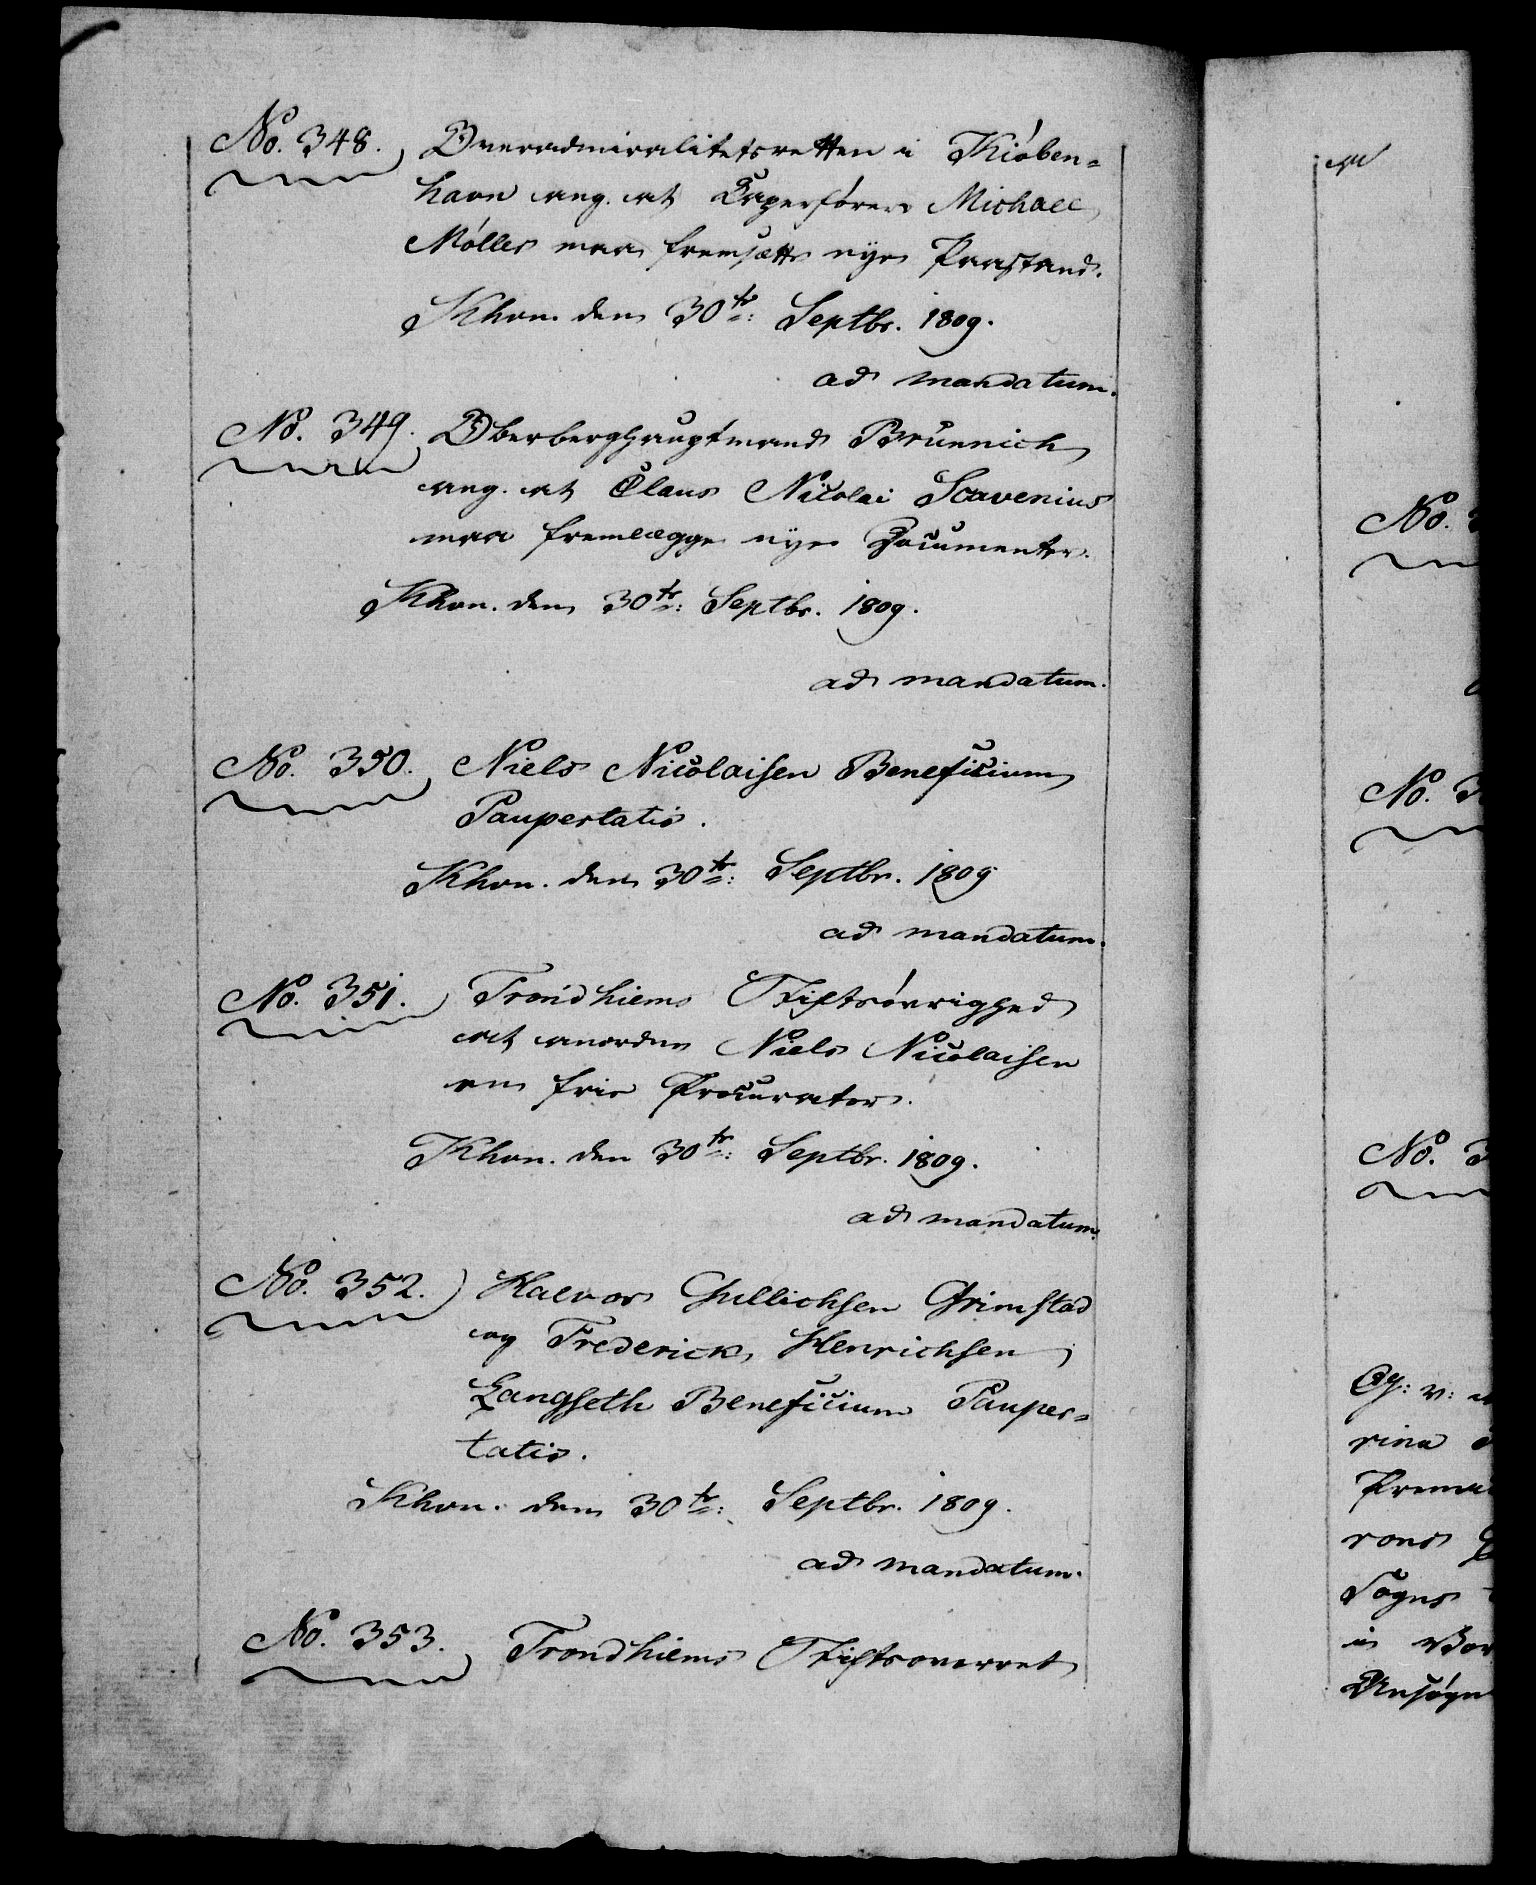 No. 348. Overadmiralitetsretten i Kiøben-
havn ang. at Caperfører Michael
Møller maa fremsætte nye Paastand.
Khvn. den 30te: Septbr. 1809.
ad mandatum.
No. 349. Oberberghauptmand Brünnich
ang. at Claus Nicolai Scavenius
maa fremlægge nye Documenter.
Khvn. den 30te: Septbr. 1809.
ad mandatum.
No. 350. Niels Nicolaisen Beneficium
Paupertatis.
Khvn. den 30te: Septbr. 1809
ad mandatum.
No. 351. Trondhiems Stiftsøvrighed
at anordne Niels Nicolaisen
en frie Procurator.
Khvn. den 30te: Septbr. 1809.
ad mandatum.
No. 352. Halvor Gullichsen Grimstad
og Frederick Henrichsen
Langseth Beneficium Pauper-
tatis.
Khvn. den 30te: Septbr. 1809.
ad mandatum.
No. 353. Trondhiems Stiftsoverret
No.
No. 3
No. 3
rina
rons
Sogns
i Bor
Ansøgn